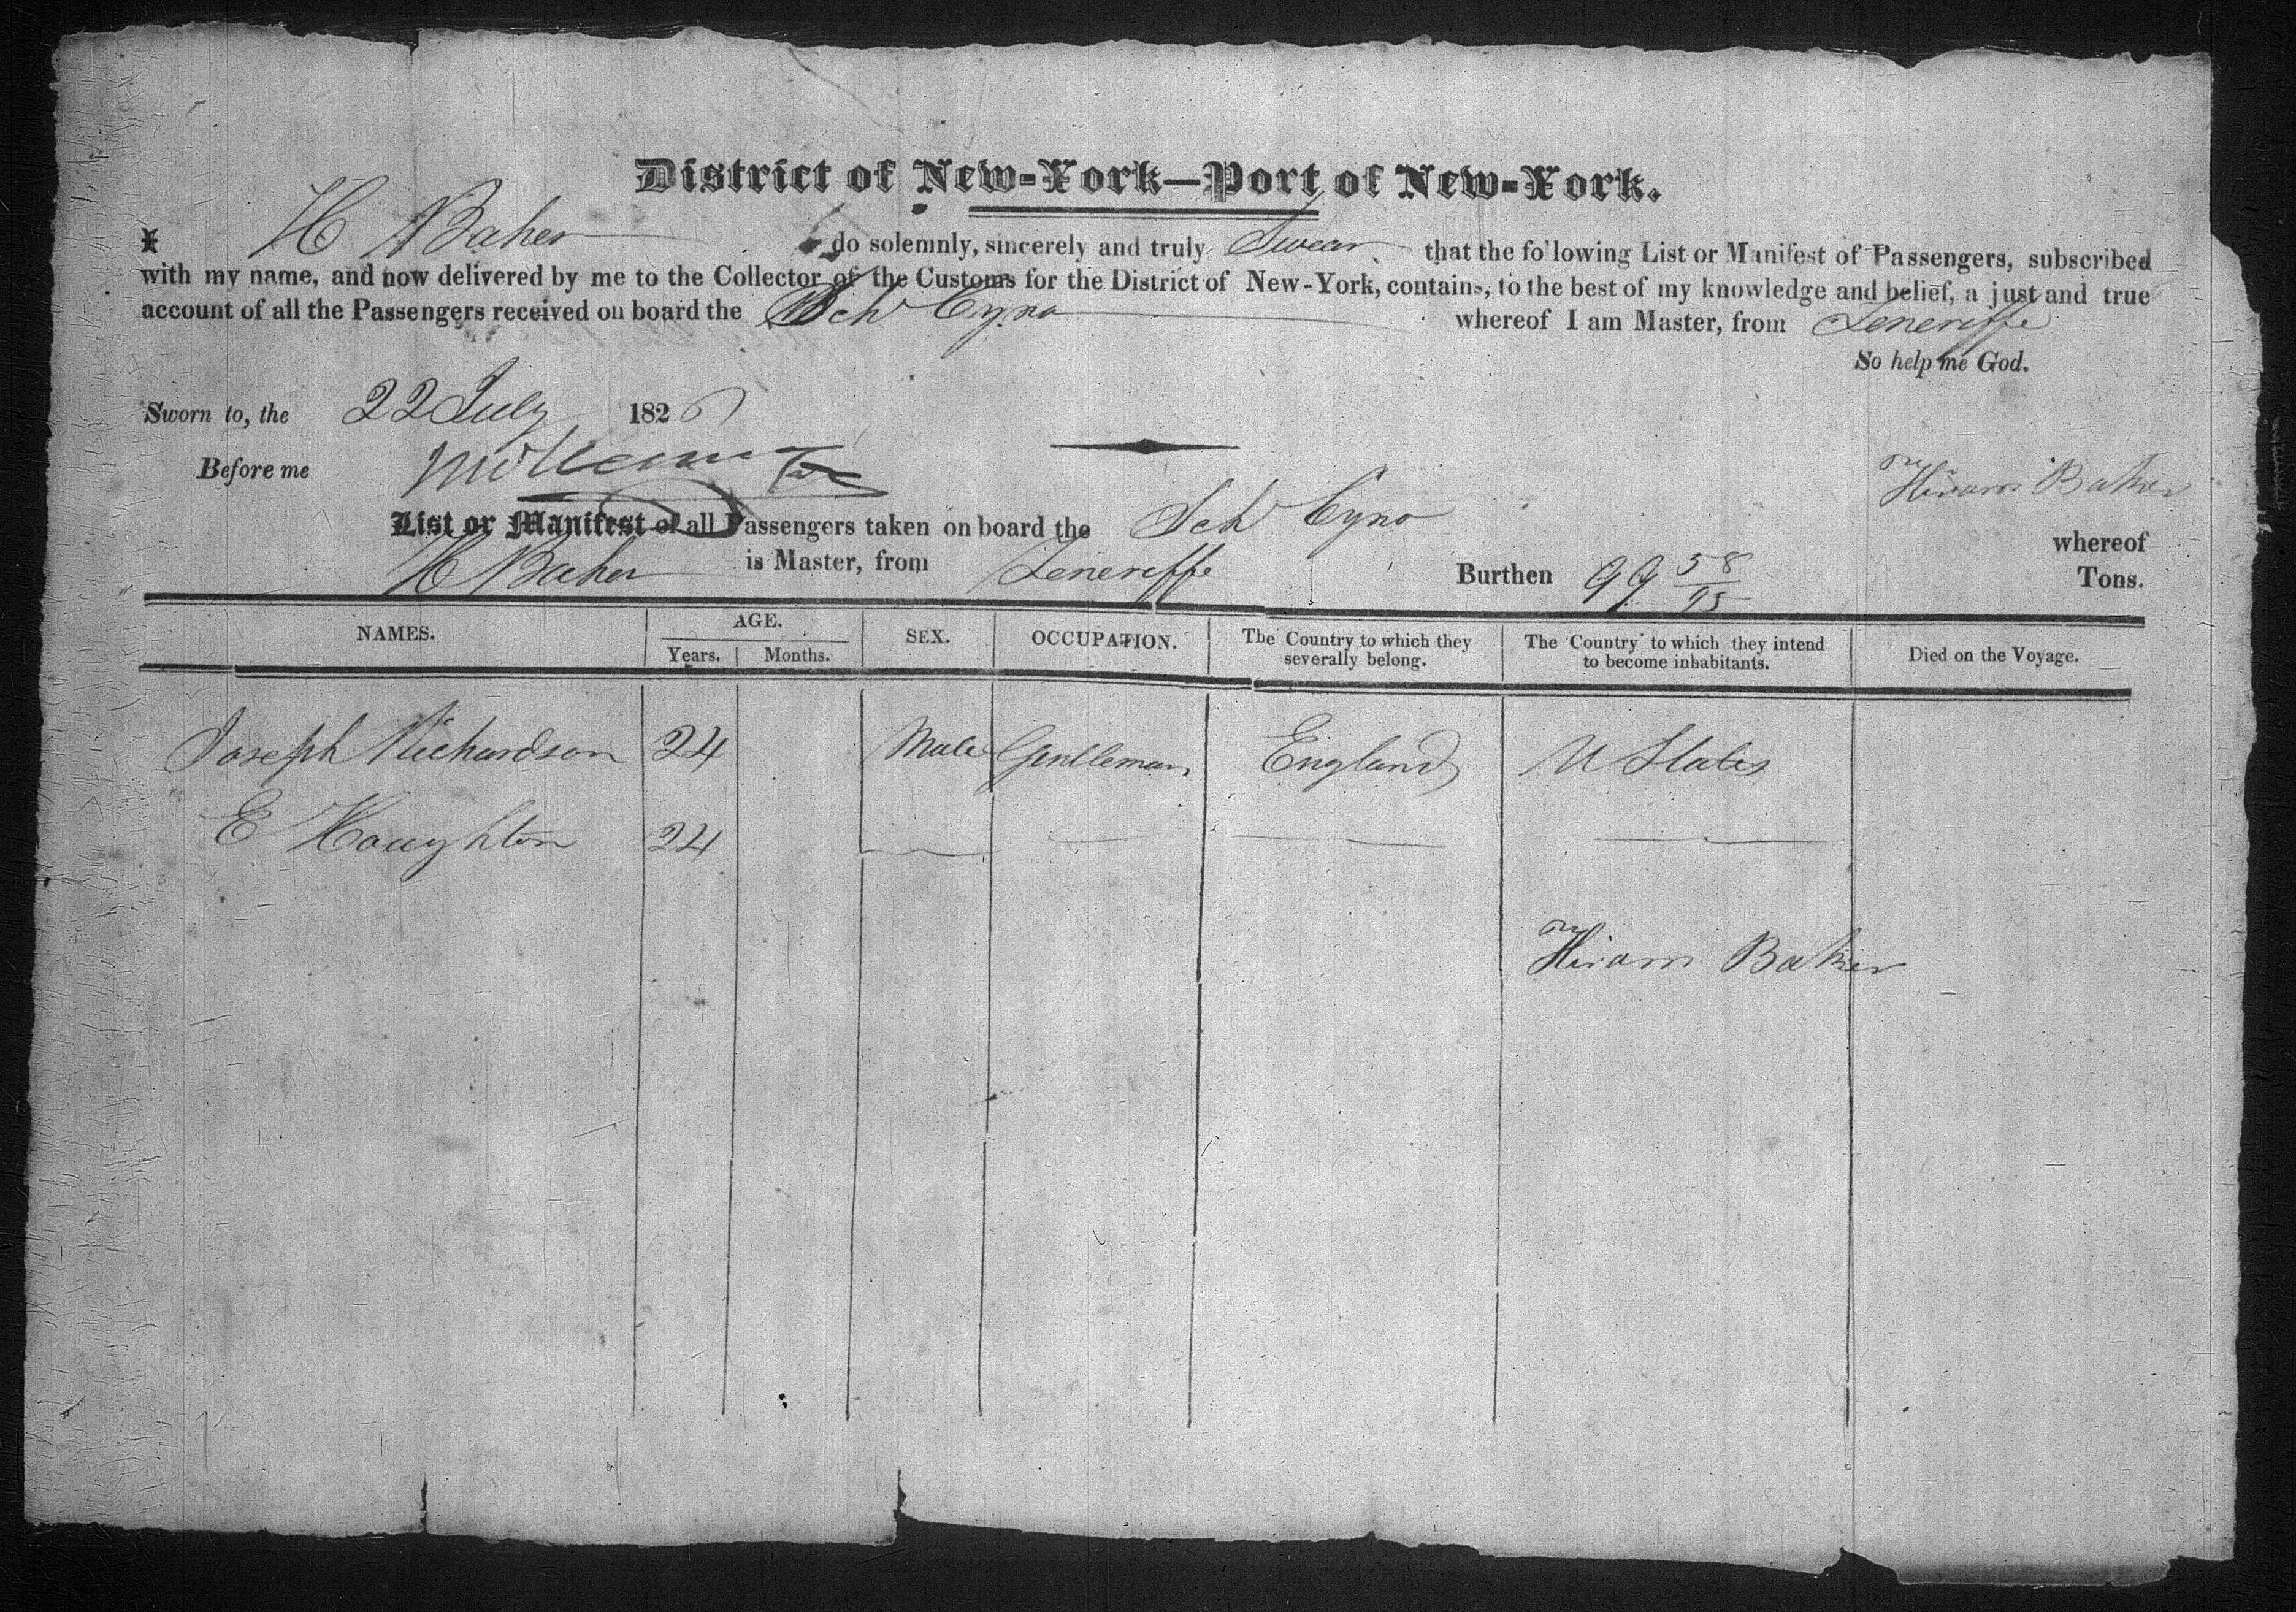 District of New-York—Port of New-York.
I H Baker do solemnly, sincerely and truly Swear that the following List or Manifest of Passengers, subscribed
with my name, and now delivered by me to the Collector of the Customs for the District of New-York, contains, to the best of my knowledge and belief, a just and true
account of all the Passengers received on board the Sch Cyno whereof I am Master, from Teneriffe
So help me God.
Sworn to, the 22 July 1826
Before me
Hiram Baker
List or Manifest of all Passengers taken on board the Sch Cyno whereof
H Baker is Master, from Teneriffe Burthen 99 58/95 Tons.
NAMES. AGE. SEX. OCCUPATION. The Country to which they severally belong. The Country to which they intend to become inhabitants. Died on the Voyage.
Years. Months.
Joseph Richardson 24 Male Gentleman England U States
E Houghton 24 — — — —
Hiram Baker